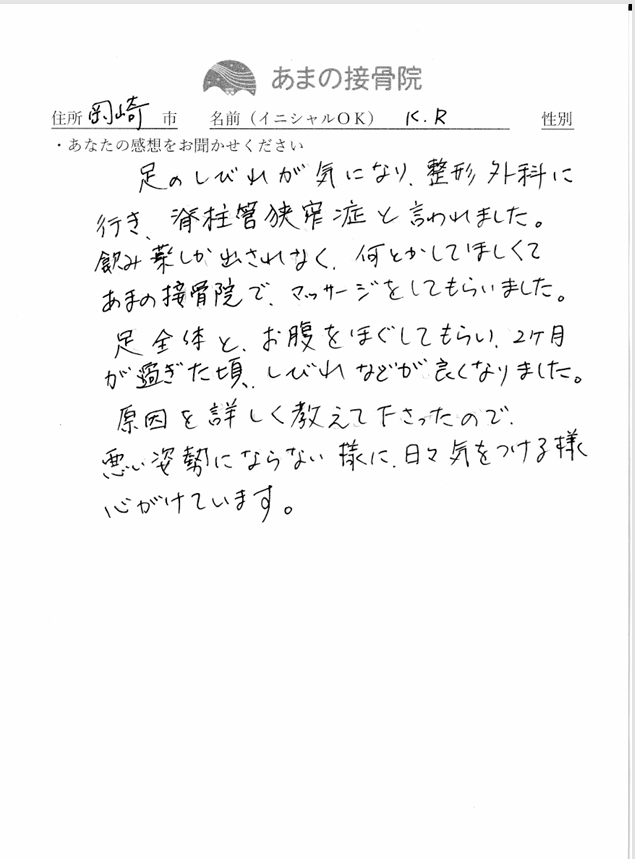 あまの接骨院
住所 岡崎 市 名前（イニシャルOK） K.R 性別
・あなたの感想をお聞かせください
足のしびれが気になり、整形外科に
行き、脊柱管狭窄症と言われました。
飲み薬しか出されなく、何とかしてほしくて
あまの接骨院で、マッサージをしてもらいました。
足全体と、お腹をほぐしてもらい、2ケ月
が過ぎた頃、しびれなどが良くなりました。
原因を詳しく教えて下さったので、
悪い姿勢にならない様に、日々気をつける様
心がけています。